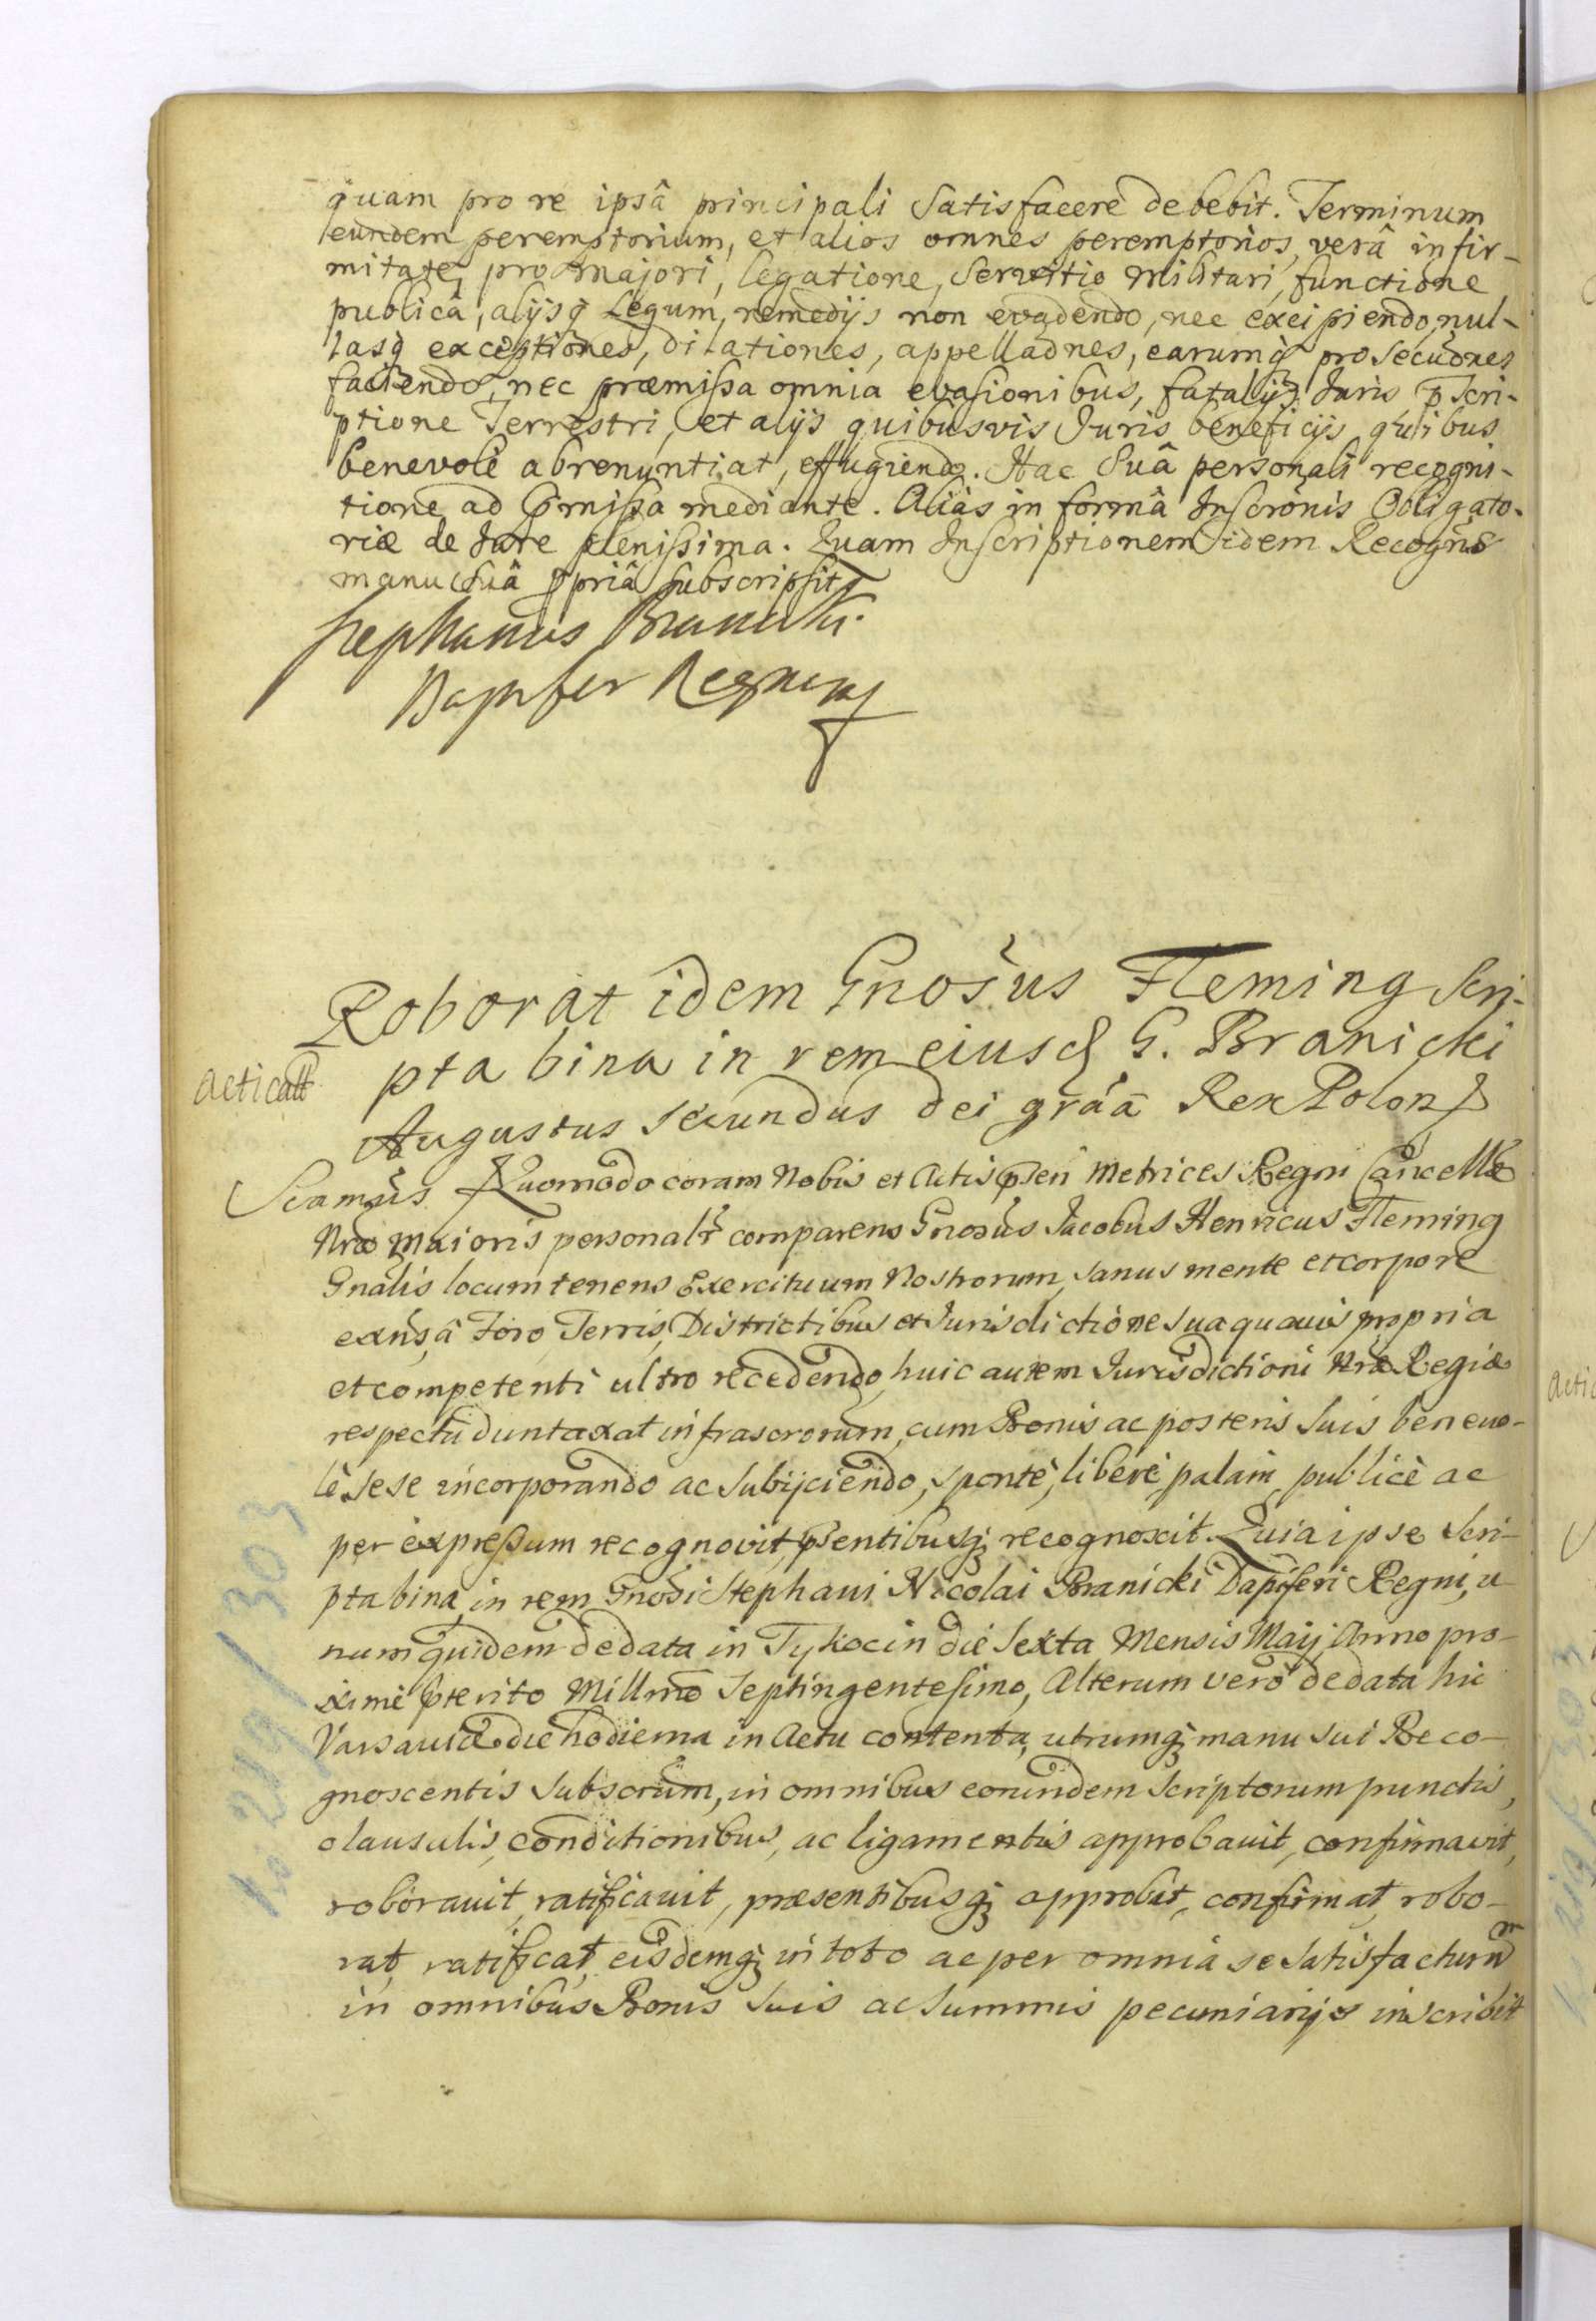 quam pro re ipsâ principali Satisfacere debebit. Terminum
eundem peremptorium, et alios omnes peremptorios, verâ infir-
mitate, pro majori, legatione, Servitio Militari, functione
publicâ, alijsq Legum, remedijs non evadendo, nec excipiendo, nul-
lasq exceptiones, dilationes, appellaônes, earumq prosecuônes
faciendo, nec præmissa omnia evasionibus, fatalijs Juris pscri-
ptione Terrestri, et alijs quibusvis Juris beneficijs quibus
benevolè abrenuntiat, effugiendo. Hac Suâ personali recogni-
tione ad pmissa mediante. Aliàs in formâ Inscrônis Obligato-
riæ de Jure plenissima. Quam Inscriptionem idem Recogñs
manu suâ ppriâ subscripsit
Stephanus Branicki
Dapifer Regni mp
Roborat idem Gnosus Fleming Scri-
pta bina in rem eiusd G. Branicki
Acticatt
Augustus secundus dei grâa Rex Polon
Scamus Quomodo coram Nobis et Actis psen Metrices Regni Cancellæ
Nræ Maioris personalr comparens Gnosus Jacobus Henricus Fleming
Gnalis locum tenens Exercituum Nostrorum, sanus mente et corpore
exns, â Foro Terris, Districtibus et Jurisdictione sua quavis propria
et competenti ultro recedendo, huic autem Jurisdictioni Nræ Regiæ
respectu duntaxat infrascrorum, cum Bonis ac posteris suis beneuo-
lè sese incorporando ac subijciendo, spontè, liberè, palam, publicè ac
per expressum recognovit, psentibusq recognoscit. Quia ipse Scri-
pta bina, in rem Gnosi Stephani Nicolai Branicki Dapiferi Regni, u-
num quidem de data in Tykocin die sexta Mensis Maij Anno pro-
ximè pterito Millmo Septingentesimo, Alterum verò de data hic
Varsauiæ die hodierna in Actu contenta, utrumq manu sui Reco-
gnoscentis subscrum, in omnibus eorundem scriptorum punctis,
clausulis, conditionibus, ac ligamentis approbauit, confirmavit,
roborauit, ratificauit, præsentibusq approbat, confirmat, robo-
rat, ratificat, eisdemq in toto ac per omnia se satisfacturum
in omnibus Bonis suis ac summis pecuniarijs inscribit
219/303